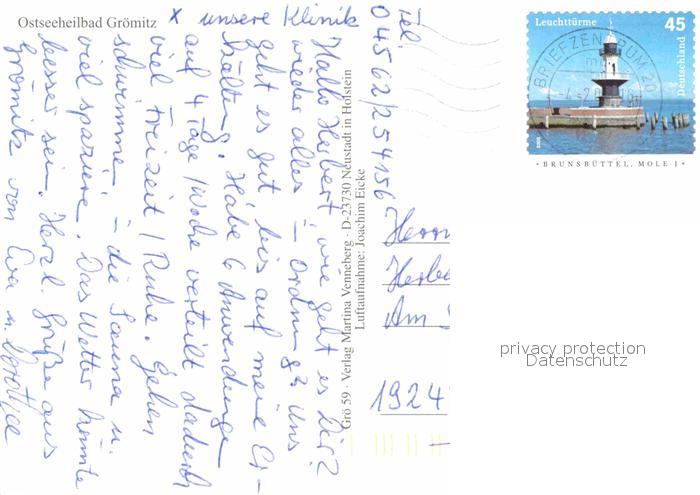 Ostseeheilbad Grömitz
x unsere Klinik
Tel.
04562/254156
Hallo Herbert, wie geht es Dir?
wieder alles in Ordnung? Uns
geht es gut, bis auf meine Er-
kältung. Habe 6 Anwendungen
auf 4 Tage/Woche verteilt dadurch
viel Freizeit/Ruhe. Gehen
schwimmen in die Sauna u.
viel spazieren. Das Wetter könnte
besser sein. Herzl. Grüße aus
Grömitz von Eva u. Dorothee
Grö 59 · Verlag Martina Venneberg · D-23730 Neustadt in Holstein
Luftaufnahme: Joachim Eicke
Herrn
Herbe
Am
1924
Leuchttürme 45
Deutschland
BRIEFZENTRUM 20
• BRUNSBÜTTEL, MOLE 1 •
privacy protection
Datenschutz